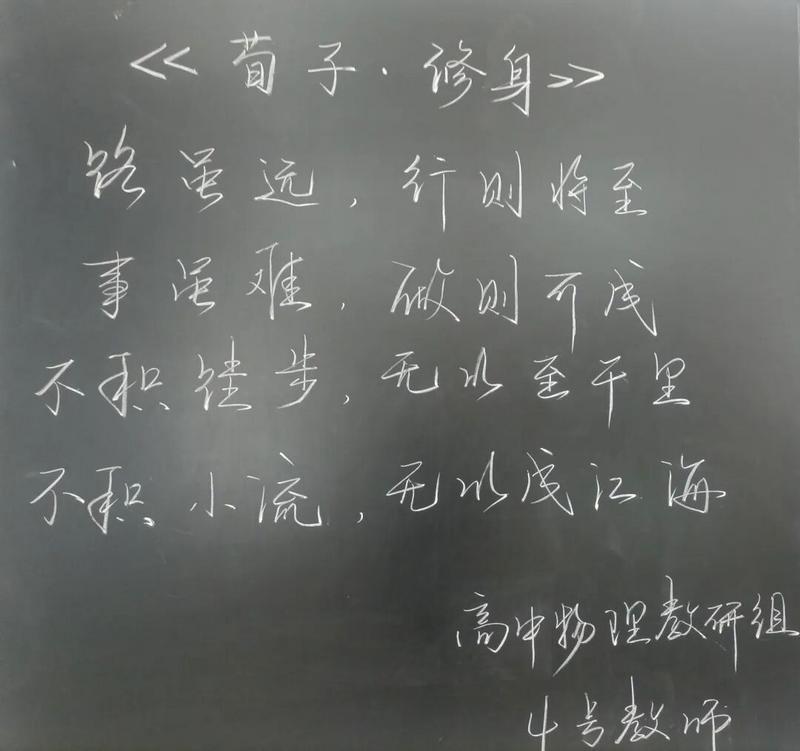 《荀子·修身》
路虽远，行则将至
事虽难，做则可成
不积跬步，无以至千里
不积小流，无以成江海
高中物理教研组
4号教师